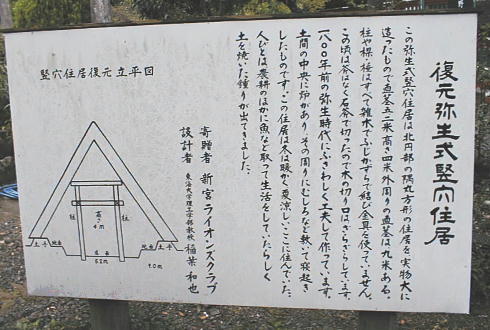 復元弥生式竪穴住居
この弥生式竪穴住居は北円部の隅丸方形の住居を実物大に
造ったもので直茎五二米高さ四米外周りの直茎は九米ある。
柱や梁、棰はすべて雑木でふじかずらで結い金具を使っていません。
この頃は斧はなく石斧で切ったので木の切り口はぎざぎざしています。
一八〇〇年前の弥生時代にふさわしく工夫して作っています。
土間の中央に炉があり、その周りにむしろなど敷いて寝起き
したものです。この住居は冬は暖かく夏涼しい、ここに住んでいた
人びとは農耕のほかに魚など取って生活をしていたらしく
土を焼いた錘りが出てきました。
寄贈者 新宮ライオンズクラブ
設計者 東海大学理工学部教授 稲葉和也
竪穴住居復元立平図
高さ
4m
柱
柱
土手
地面
地面
土手
5.2m
9.0m